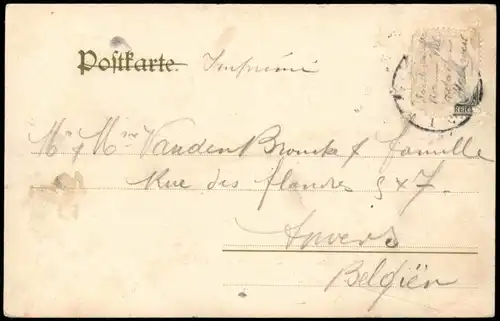 Postkarte Imprimé
Mr & Mme Vanden Broucke & famille
Rue des flandres 547.
Anvers
Belgien